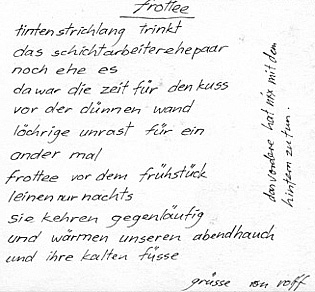 frottee
tintenstrichlang trinkt
das schichtarbeiterehepaar
noch ehe es
da war die zeit für den kuss
vor der dünnen wand
löchrige unrast für ein
ander mal
frottee vor dem frühstück
leinen nur nachts
sie kehren gegenläufig
und wärmen unseren abendhauch
und ihre kalten füsse
grüsse von rolff
das vordere hat nix mit dem
hintern zu tun.